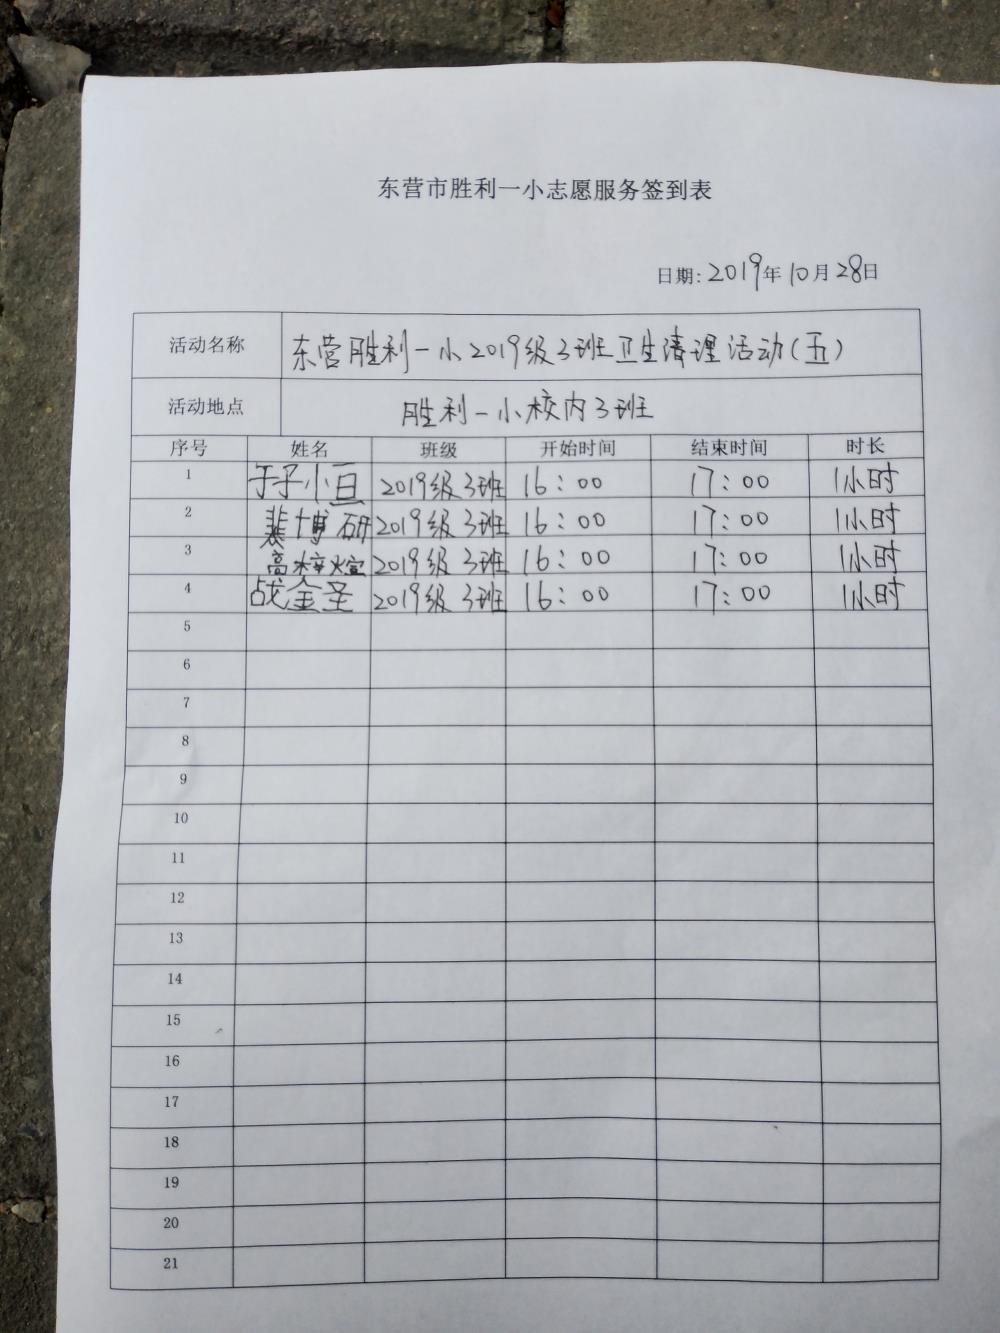 东营市胜利一小志愿服务签到表
日期: 2019年10月28日
活动名称 东营胜利一小2019级3班卫生清理活动(五)
活动地点 胜利一小校内3班
序号 姓名 班级 开始时间 结束时间 时长
1 于子小亘 2019级3班 16:00 17:00 1小时
2 裴博研 2019级3班 16:00 17:00 1小时
3 高梓煊 2019级3班 16:00 17:00 1小时
4 战金圣 2019级3班 16:00 17:00 1小时
5
6
7
8
9
10
11
12
13
14
15
16
17
18
19
20
21